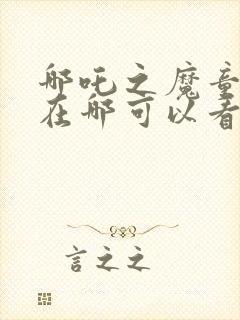 哪吒之魔童
在哪可以看
言之之